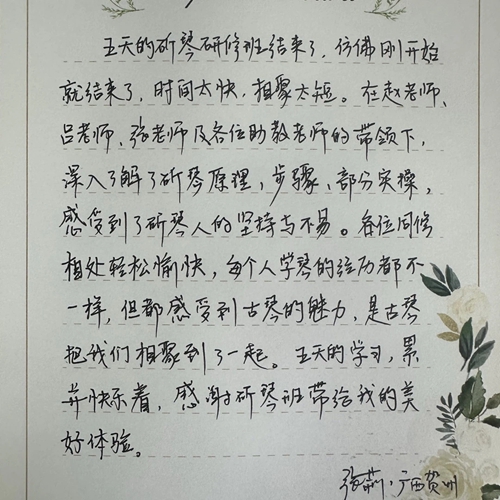 五天的斫琴研修班结束了，仿佛刚开始
就结束了，时间太快，相聚太短。在赵老师、
吕老师、张老师及各位助教老师的带领下，
深入了解了斫琴原理，步骤，部分实操，
感受到了斫琴人的坚持与不易。各位同修
相处轻松愉快，每个人学琴的经历都不
一样，但都感受到古琴的魅力，是古琴
把我们相聚到了一起。五天的学习，累
并快乐着，感谢斫琴班带给我的美
好体验。
张莉·广西贺州